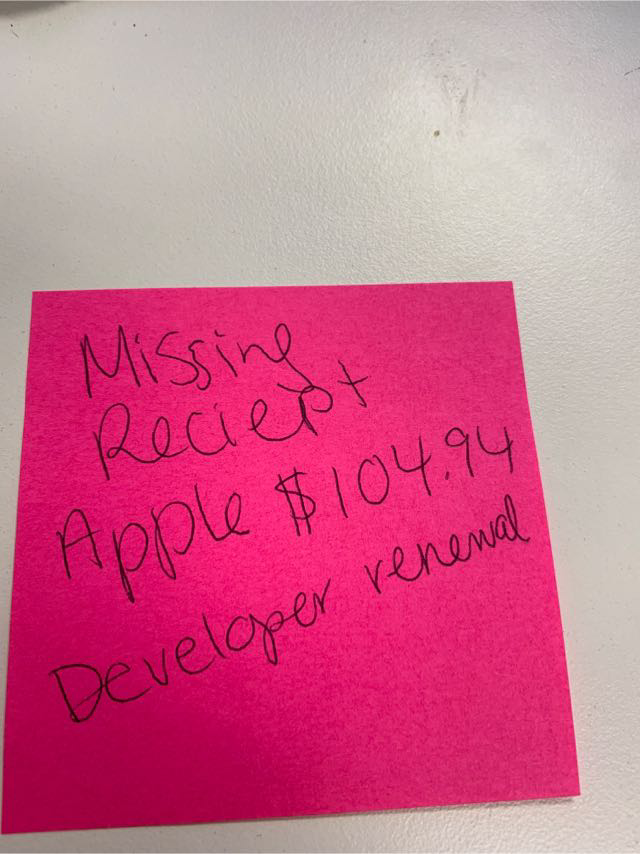 Missing
Reciept
Apple $104.94
Developer renewal